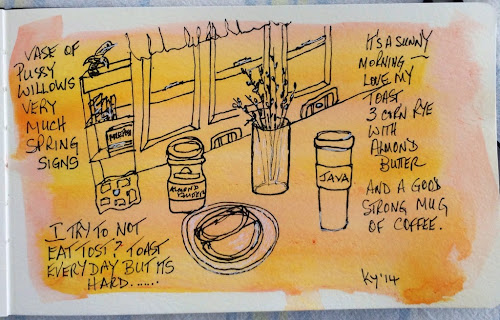 VASE OF
PUSSY
WILLOWS
VERY
MUCH
SPRING
SIGNS
IT'S A SUNNY
MORNING —
LOVE MY
TOAST
3 CORN RYE
WITH
ALMOND
BUTTER
AND A GOOD
STRONG MUG
OF COFFEE.
ALMOND
JAVA
I TRY TO NOT
EAT TOST? TOAST
EVERYDAY BUT IT'S
HARD......
KY '14